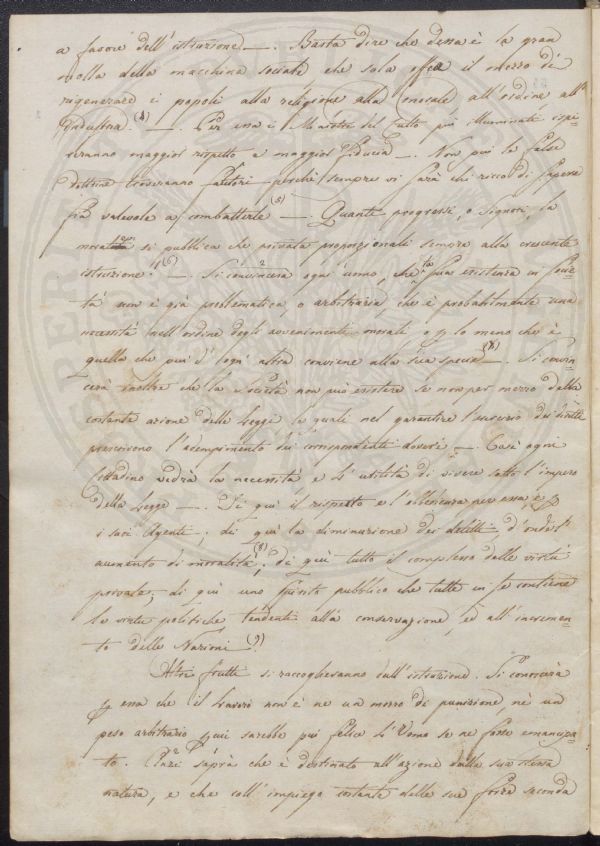 a favore dell'istruzione —. Basta dire che dessa è la gran
molla della macchina sociale che sola offre il mezzo di
rigenerare i popoli alla religione alla morale all'ordine all'
Industria. (4) —. Per essa i Maestri del Culto più illuminati ispi=
reranno maggior rispetto a maggior fiducia —. Non più le false
dottrine troveranno fautori perchè sempre vi sarà chi ricco di sapere
sia valevole a combatterle (5) —. Quanti progressi, o Signori, la
morale si pubblica che privata proporzionali sempre alla crescente
istruzione! (6) —. Si convincerà ogni uomo, che la sua esistenza in socie=
tà non è già problematica, o arbitraria, che è probabilmente una
necessità nell'ordine degli avvenimenti morali o p lo meno che è
quella che più d'ogni altra conviene alla sua specie (7) —. Si convin=
cerà inoltre che la Società non può esistere se non per mezzo della
costante azione delle Leggi le quali nel garantire l'esercizio dei diritti
prescrivono l'adempimento dei corrispondenti doveri —. Così ogni
Cittadino vedrà la necessità e l'utilità di vivere sotto l'impero
della Legge —. Di quì il rispetto e l'obbedienza per essa, e p
i suoi Agenti: di quì la diminuzione dei delitti, d'onde l'
aumento di moralità (8); di quì tutto il complesso delle virtù
private, di quì uno spirito pubblico che tutte in se contiene
le virtù politiche tendenti alla conservazione, ed all'incremen=
to delle Nazioni (9)
Altri frutti si raccoglieranno dall'istruzione. Si conoscerà
p essa che il lavoro non è ne un mezzo di punizione, nè un
peso arbitrario p cui sarebbe più felice l'Uomo se ne fosse emancipa=
to. Anzi saprà che è destinato all'azione dalla sua stessa
natura, e che coll'impiego costante delle sue forze seconda